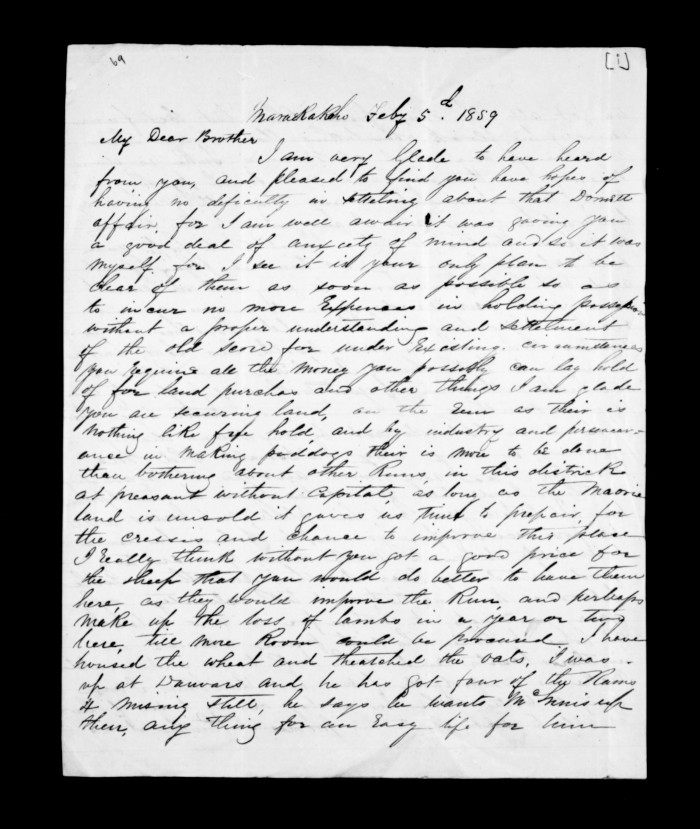 69
[1]
Maraekakaho Feby 5d. 1859
My Dear Brother
I am very Glade to have heard
from you, and pleased to find you have hopes of
having no deficulty in setteling about that Domett
affair, for I am well awair it was giving you
a good deal of anxiety of mind and so it was
myself, for I see it is your only plan to be
clear of them as soon as possible so as
to incur no more Expences in holding possession
without a proper understanding and settelment
of the old score for under Existing circumstances
you Require all the money you possibly can lay hold
of for land purchas and other things I am glade
you are securing land, on the Run as their is
nothing like free hold, and by industry and persever-
ance in making paddogs their is more to be done
than bothering about other Runs, in this district
at pleasant without Capital, as long as the Maorie
land is unsold it gives us time to prepair for
the cresses and chance to improve this place
I really think without you got a good price for
the sheep that you would do better to have them
here, as they would improve the Run, and perhaps
make up the loss of lambs in a year or two
here, till more Room could be procured. I have
housed the wheat and theatched the oats, I was
up at and he has got four of the Rams
4 missing still, he says he wants McInnis up
then, any thing for an Easy life for him